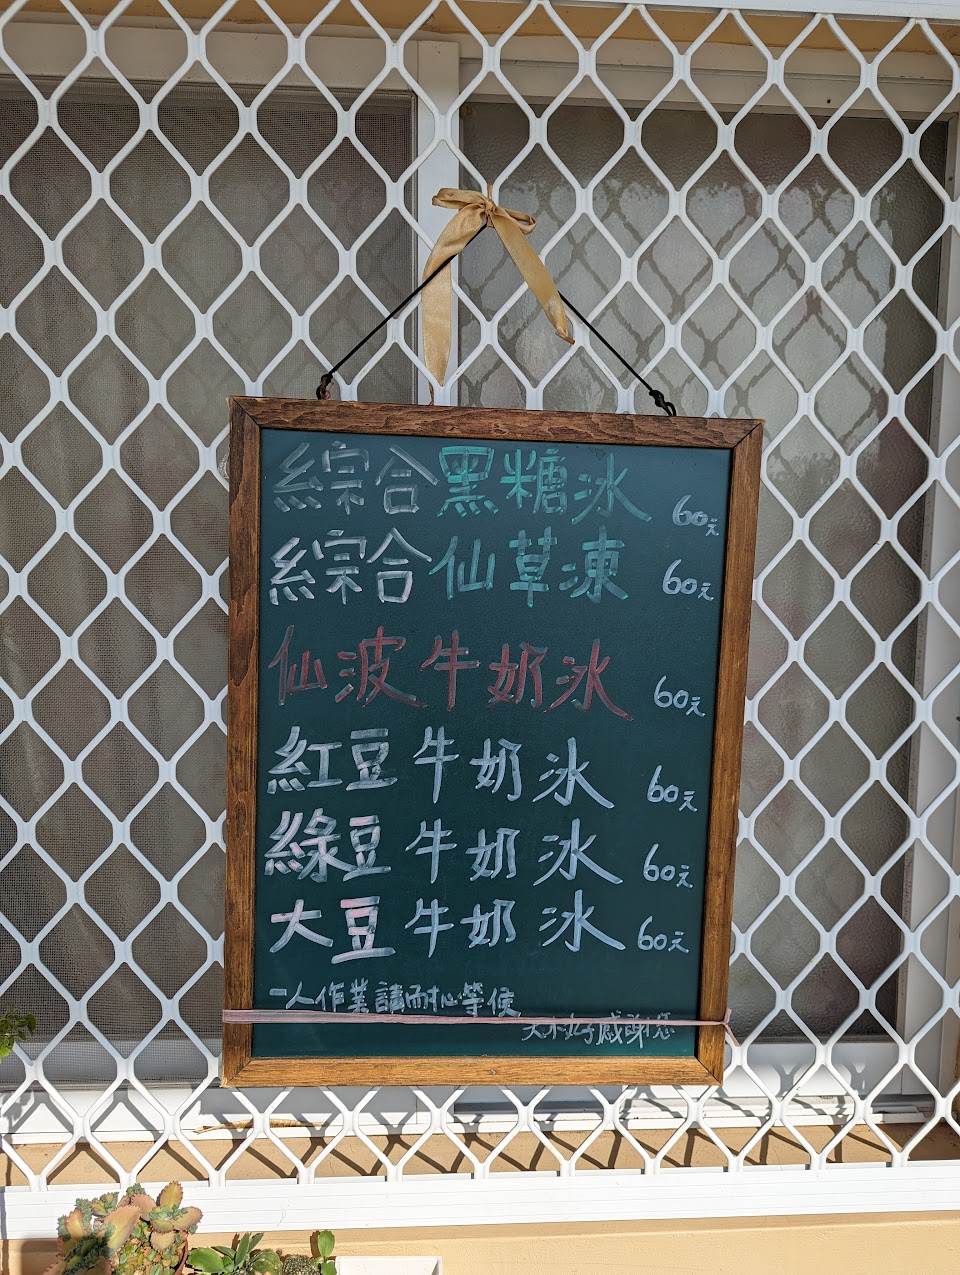 綜合黑糖冰 60元
綜合仙草凍 60元
仙波牛奶冰 60元
紅豆牛奶冰 60元
綠豆牛奶冰 60元
大豆牛奶冰 60元
一人作業請耐心等候
感謝您